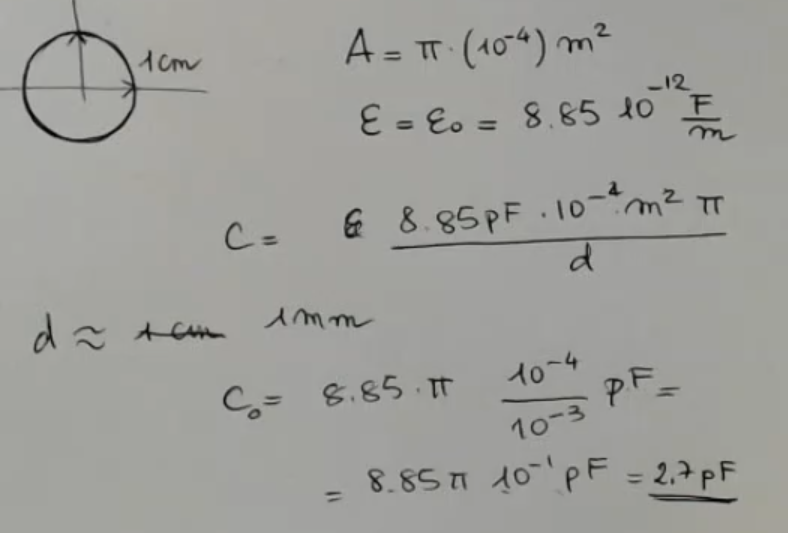 1cm
A = π · (10⁻⁴) m²
ε = ε₀ = 8.85 10⁻¹² F/m
C = 8.85pF · 10⁻⁴ m² π / d
d ≈ 1 cm 1mm
C₀ = 8.85 · π 10⁻⁴/10⁻³ pF =
= 8.85π 10⁻¹ pF = 2.7 pF